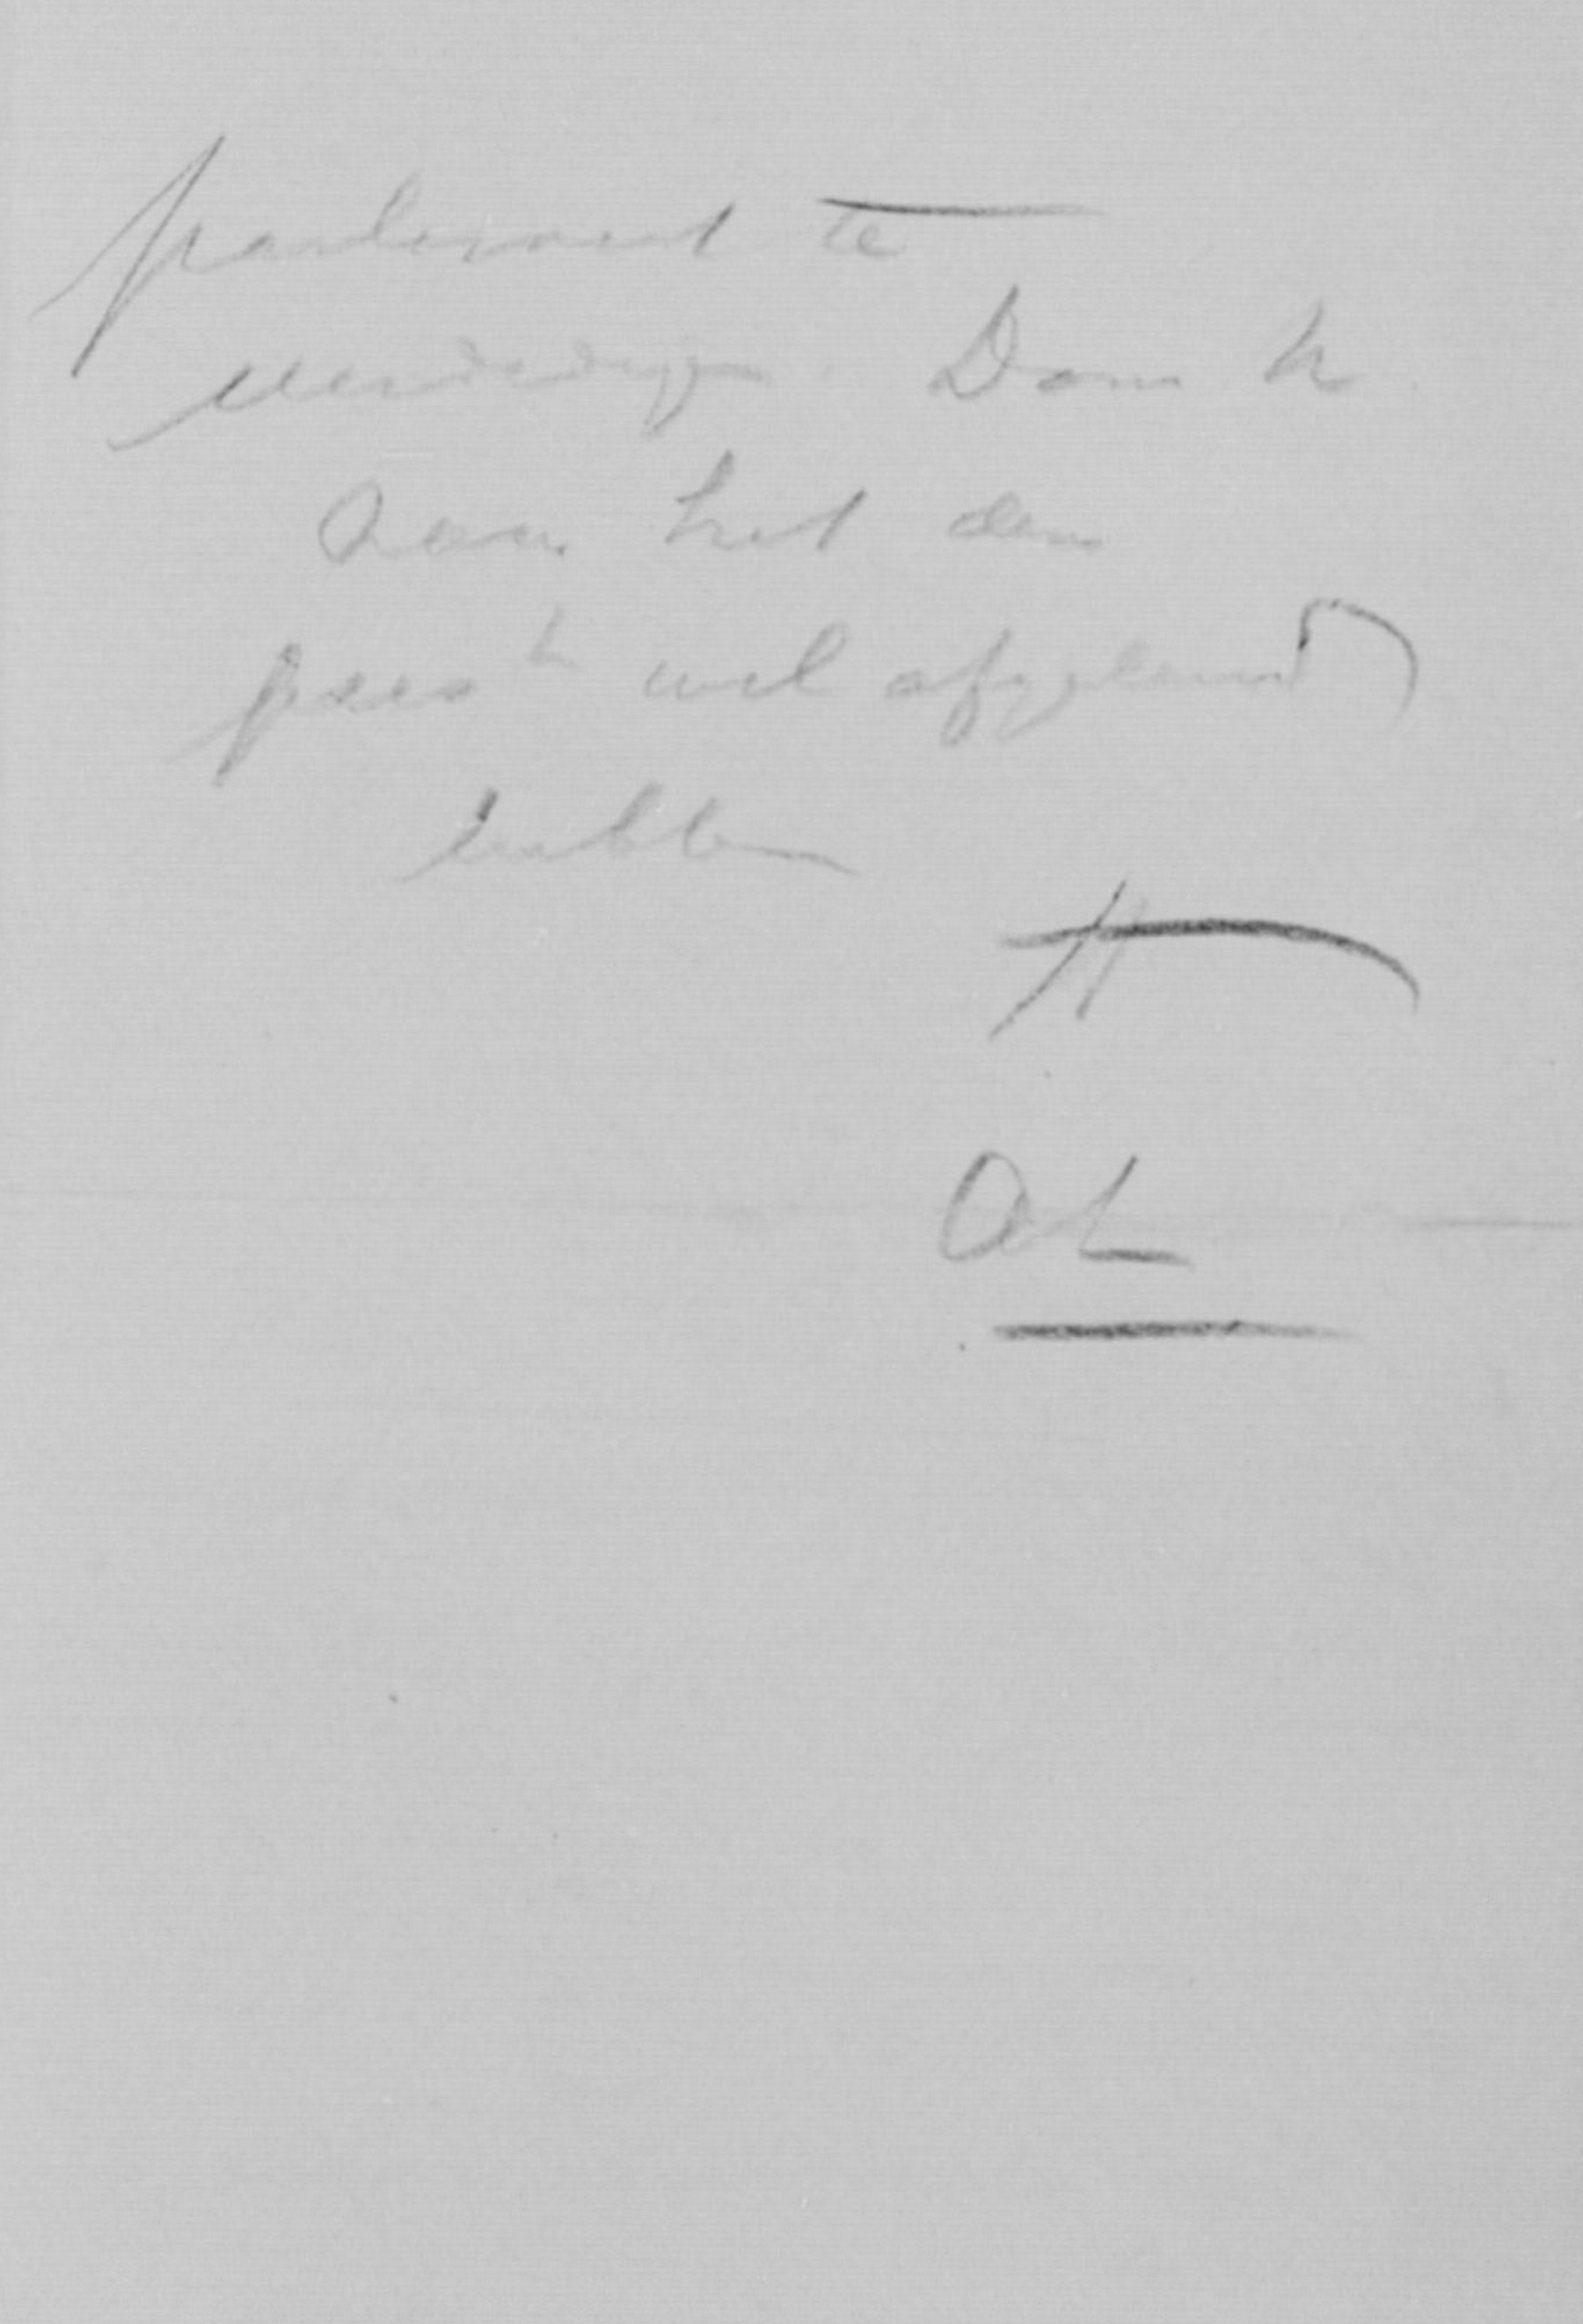 parlement te
verdedigen. Dan h
aan het den
wel afgeleend
hebben
H
OL